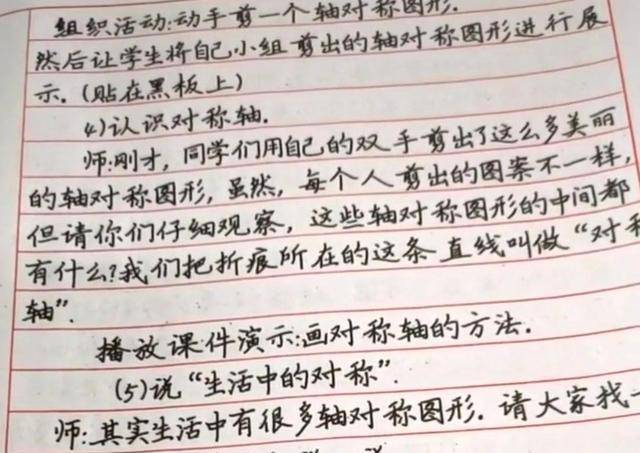 组织活动:动手剪一个轴对称图形.
然后让学生将自己小组剪出的轴对称图形进行展
示.(贴在黑板上)
4)认识对称轴.
师:刚才,同学们用自己的双手剪出了这么多美丽
的轴对称图形,虽然,每个人剪出的图案不一样,
但请你们仔细观察,这些轴对称图形的中间都
有什么?我们把折痕所在的这条直线叫做“对称
轴”.
播放课件演示:画对称轴的方法.
(5)说“生活中的对称”.
师:其实生活中有很多轴对称图形.请大家找一